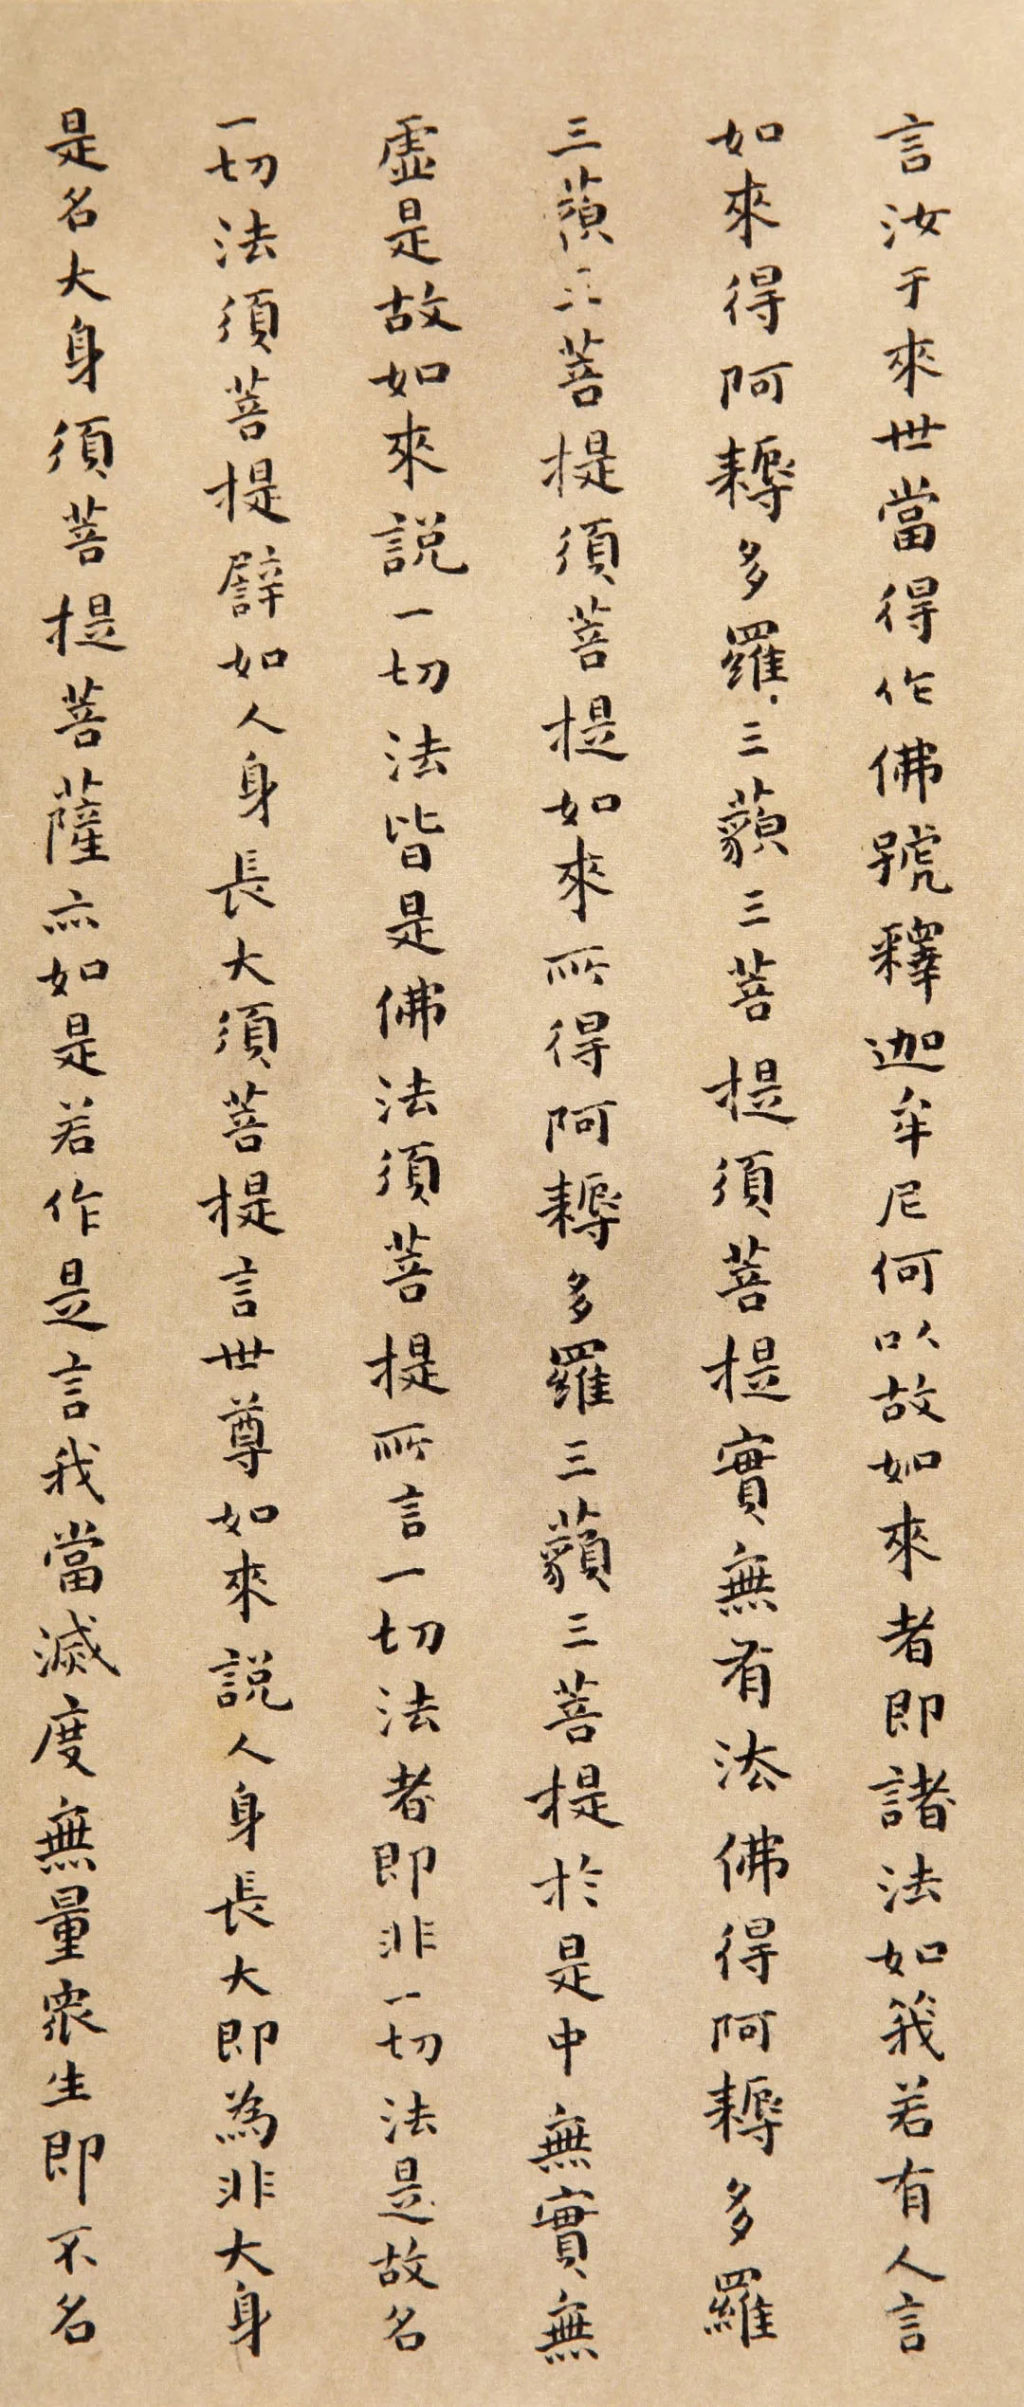 言汝于來世當得作佛號釋迦牟尼何以故如來者即諸法如義若有人言
如來得阿耨多羅三藐三菩提須菩提實無有法佛得阿耨多羅
三藐三菩提須菩提如來所得阿耨多羅三藐三菩提於是中無實無
虛是故如來說一切法皆是佛法須菩提所言一切法者即非一切法是故名
一切法須菩提譬如人身長大須菩提言世尊如來說人身長大即為非大身
是名大身須菩提菩薩亦如是若作是言我當滅度無量眾生即不名